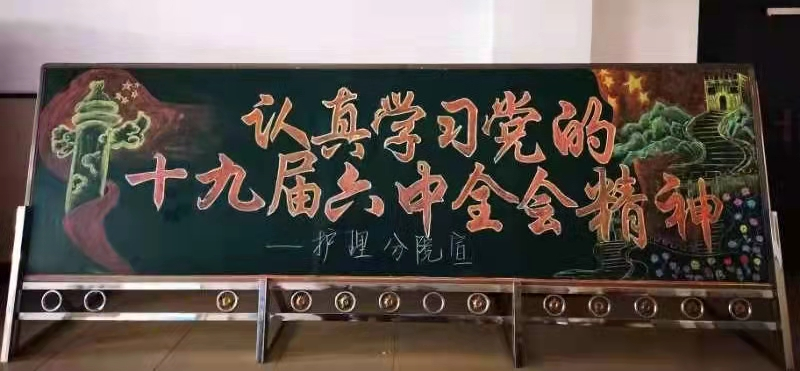 认真学习党的
十九届六中全会精神
——护理分院宣